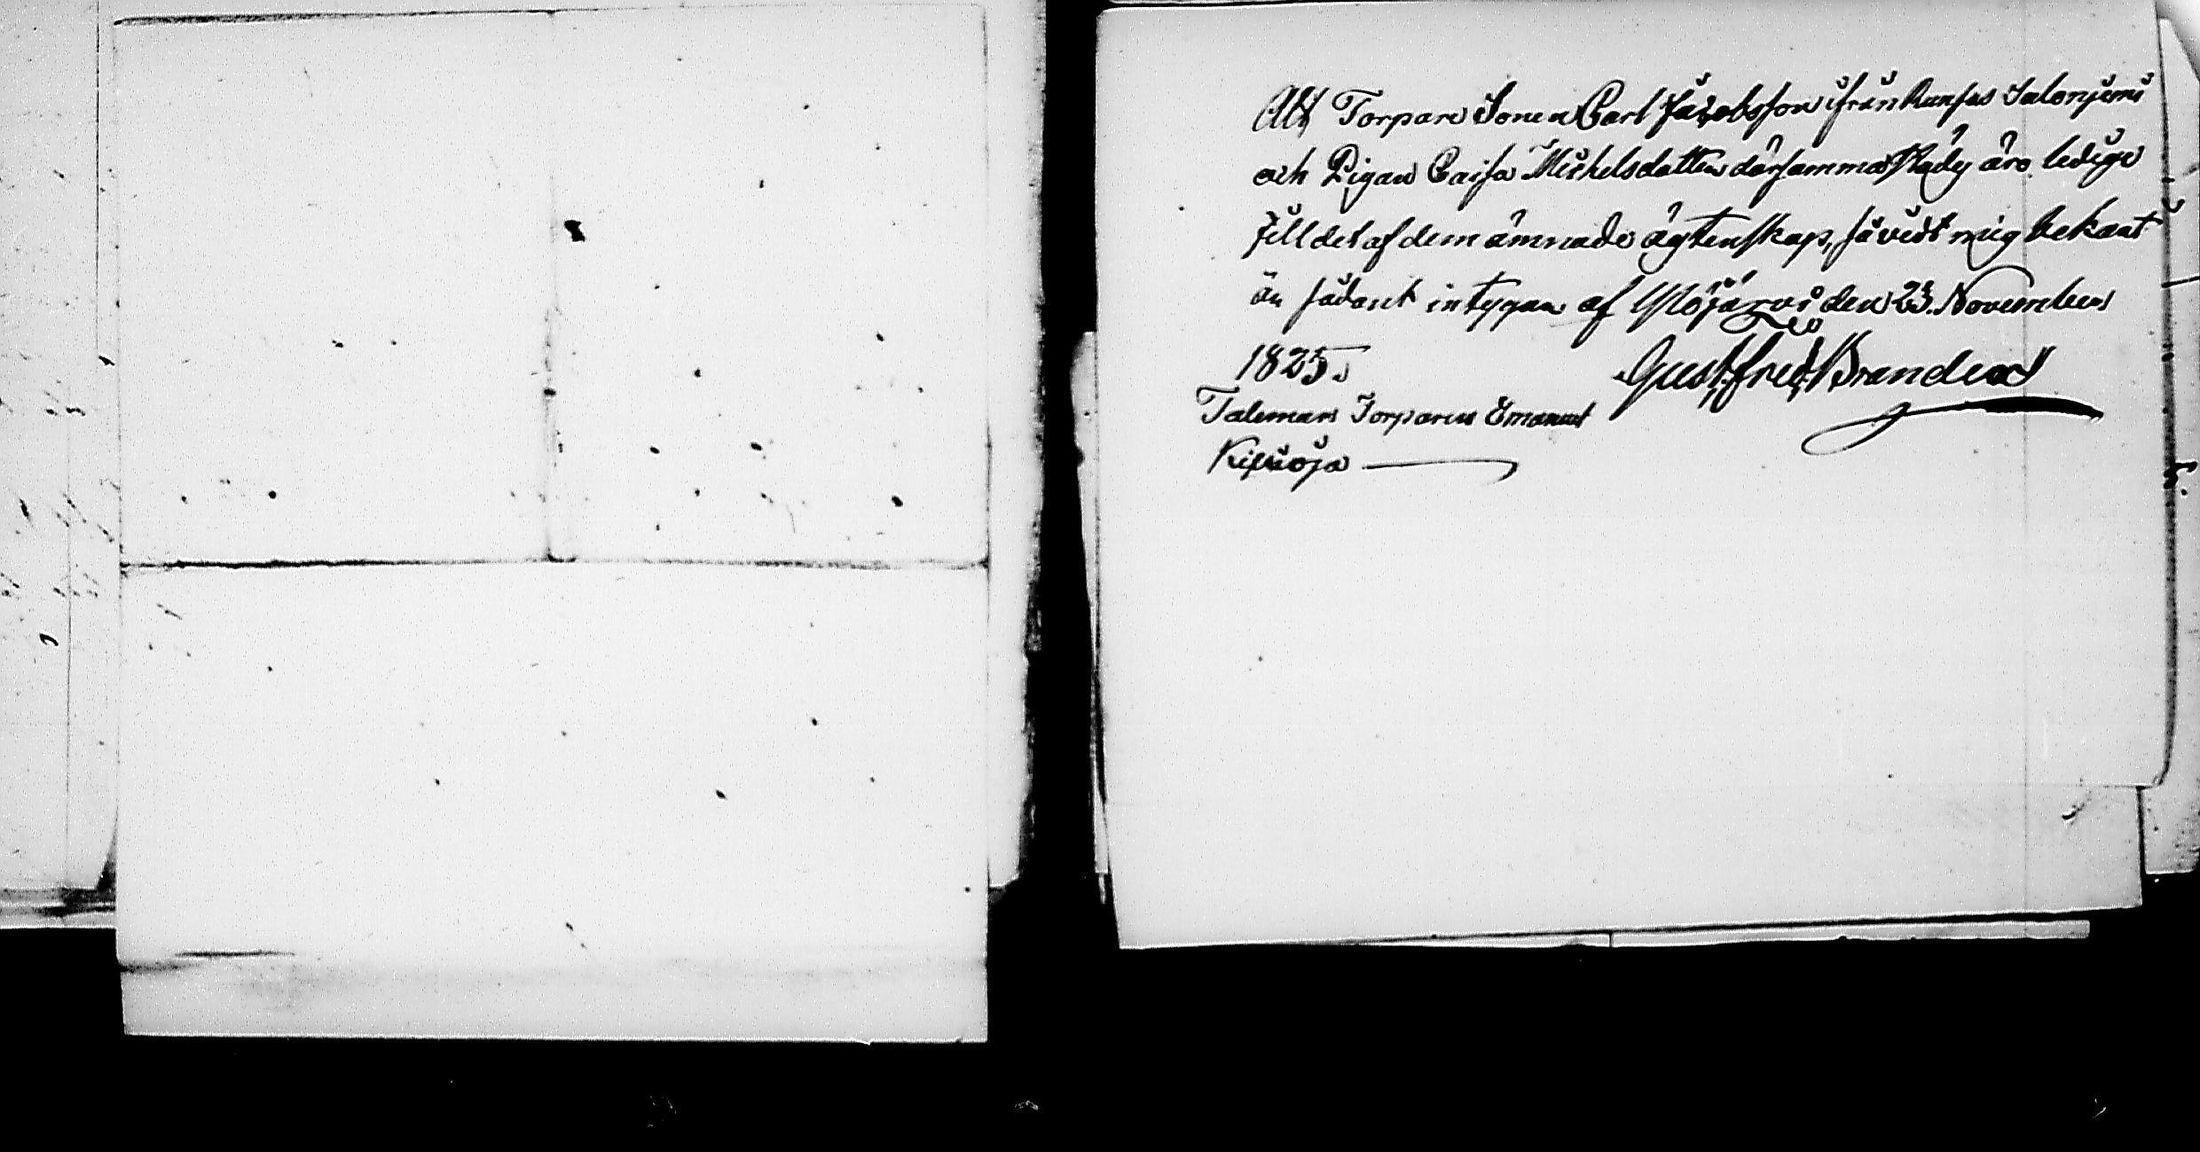 Att Torpare Sonen Carl Jacobsson ifrån Runsas Salonjemi
och Pigan Caisa Michelsdotter därsammastädz äro ledige
till det af dem ämnade ägtenskap, så vidt mig bekant
är sådant intygar af Ylöjärvi den 23. November
1825.
Gust. Fred. Brander
Taleman Torparen Emanuel